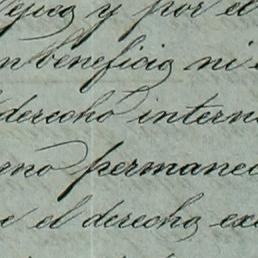 y por el
beneficio ni
derecho intern
permanec
el derecho ex